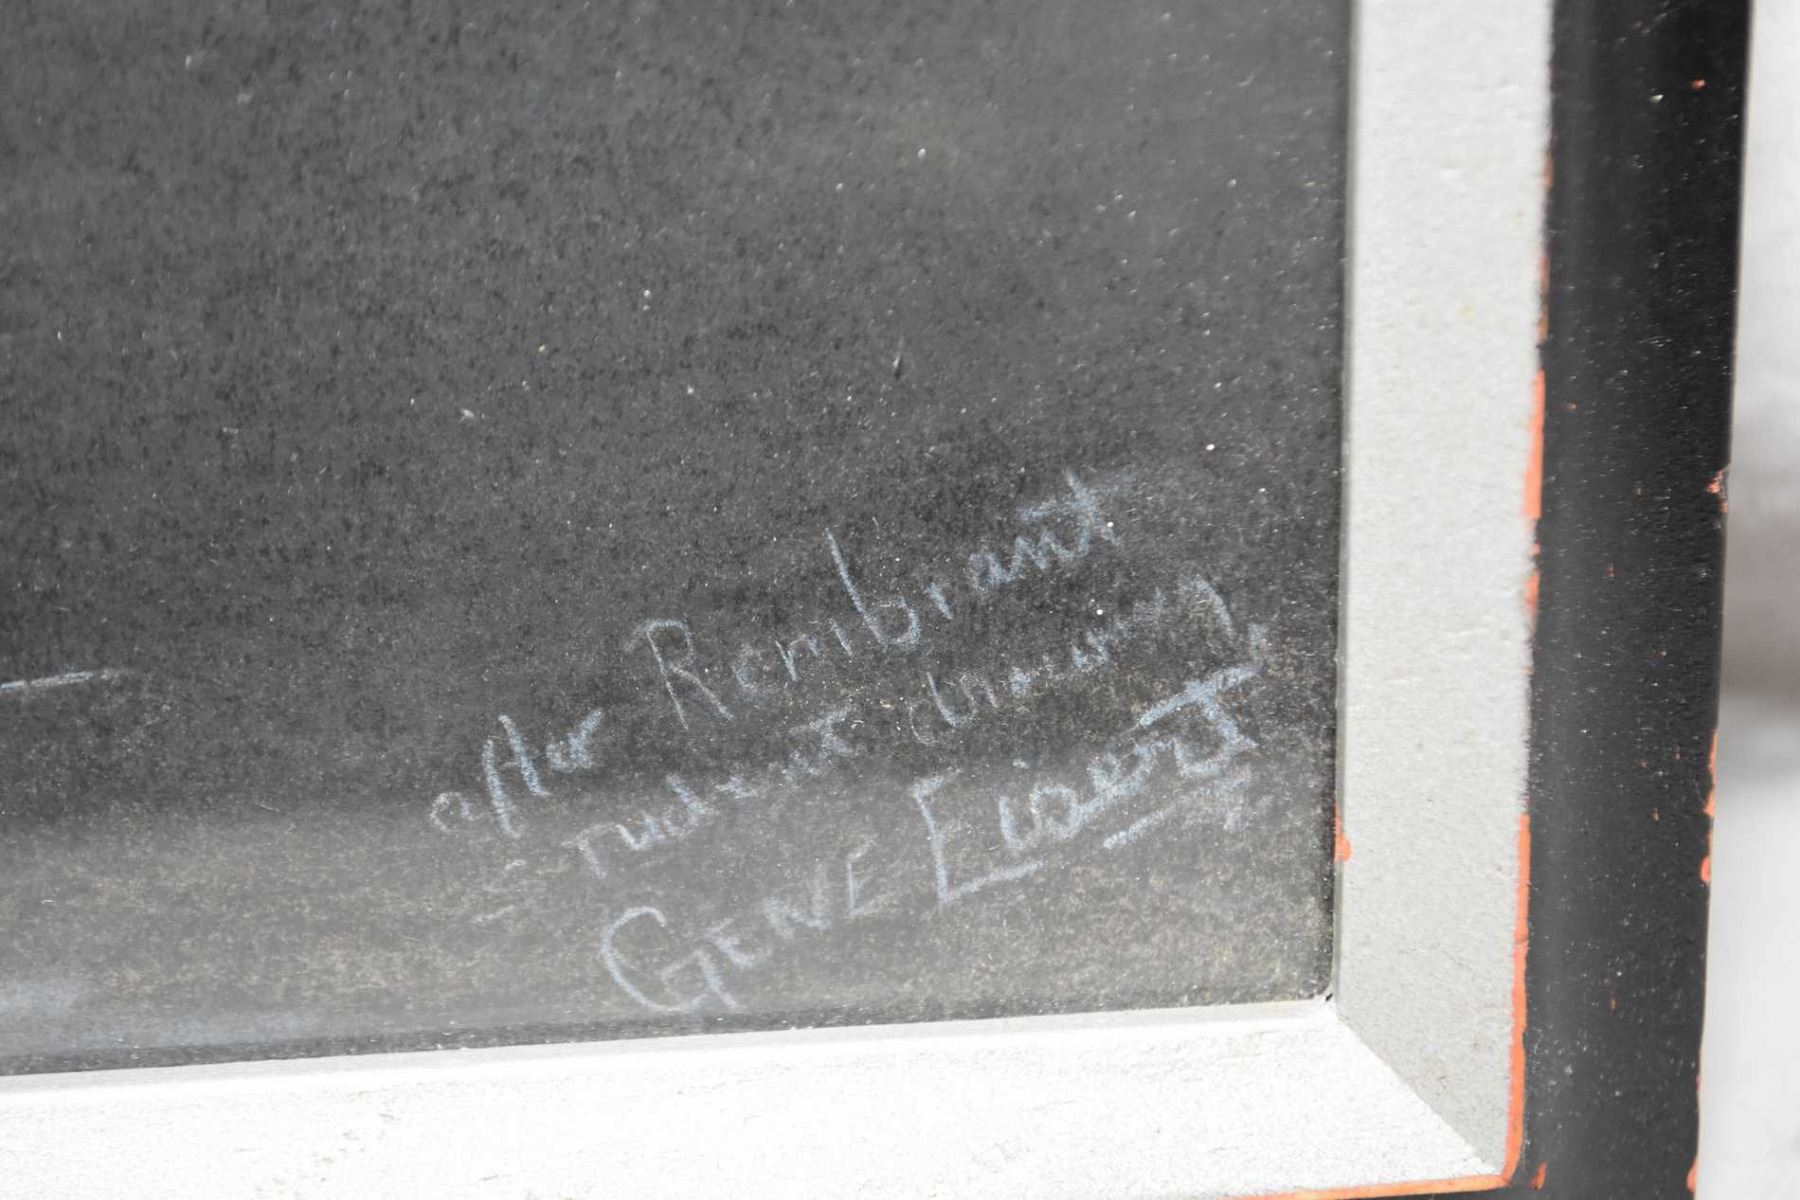 after Rembrant
Student drawing
GENE